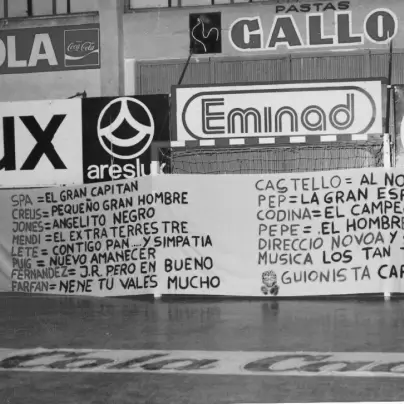 PASTAS
GALLO
OLA
Coca-Cola
Eminad
ux
areslux
SPA = EL GRAN CAPITAN
CREUS = PEQUEÑO GRAN HOMBRE
JONES = ANGELITO NEGRO
MENDI = EL EXTRA TERRES TRE
LETE = CONTIGO PAN...Y SIMPATIA
PUIG = NUEVO AMANECER
FERNANDEZ = J.R. PERO EN BUENO
FARFAN = NENE TU VALES MUCHO
CASTELLO = AL NO
PEP = LA GRAN ESP
CODINA = EL CAMPE
PEPE = .EL HOMBRE
DIRECCIO NOVOA Y
MUSICA LOS TAN
GUIONISTA CAR
Cola Ca